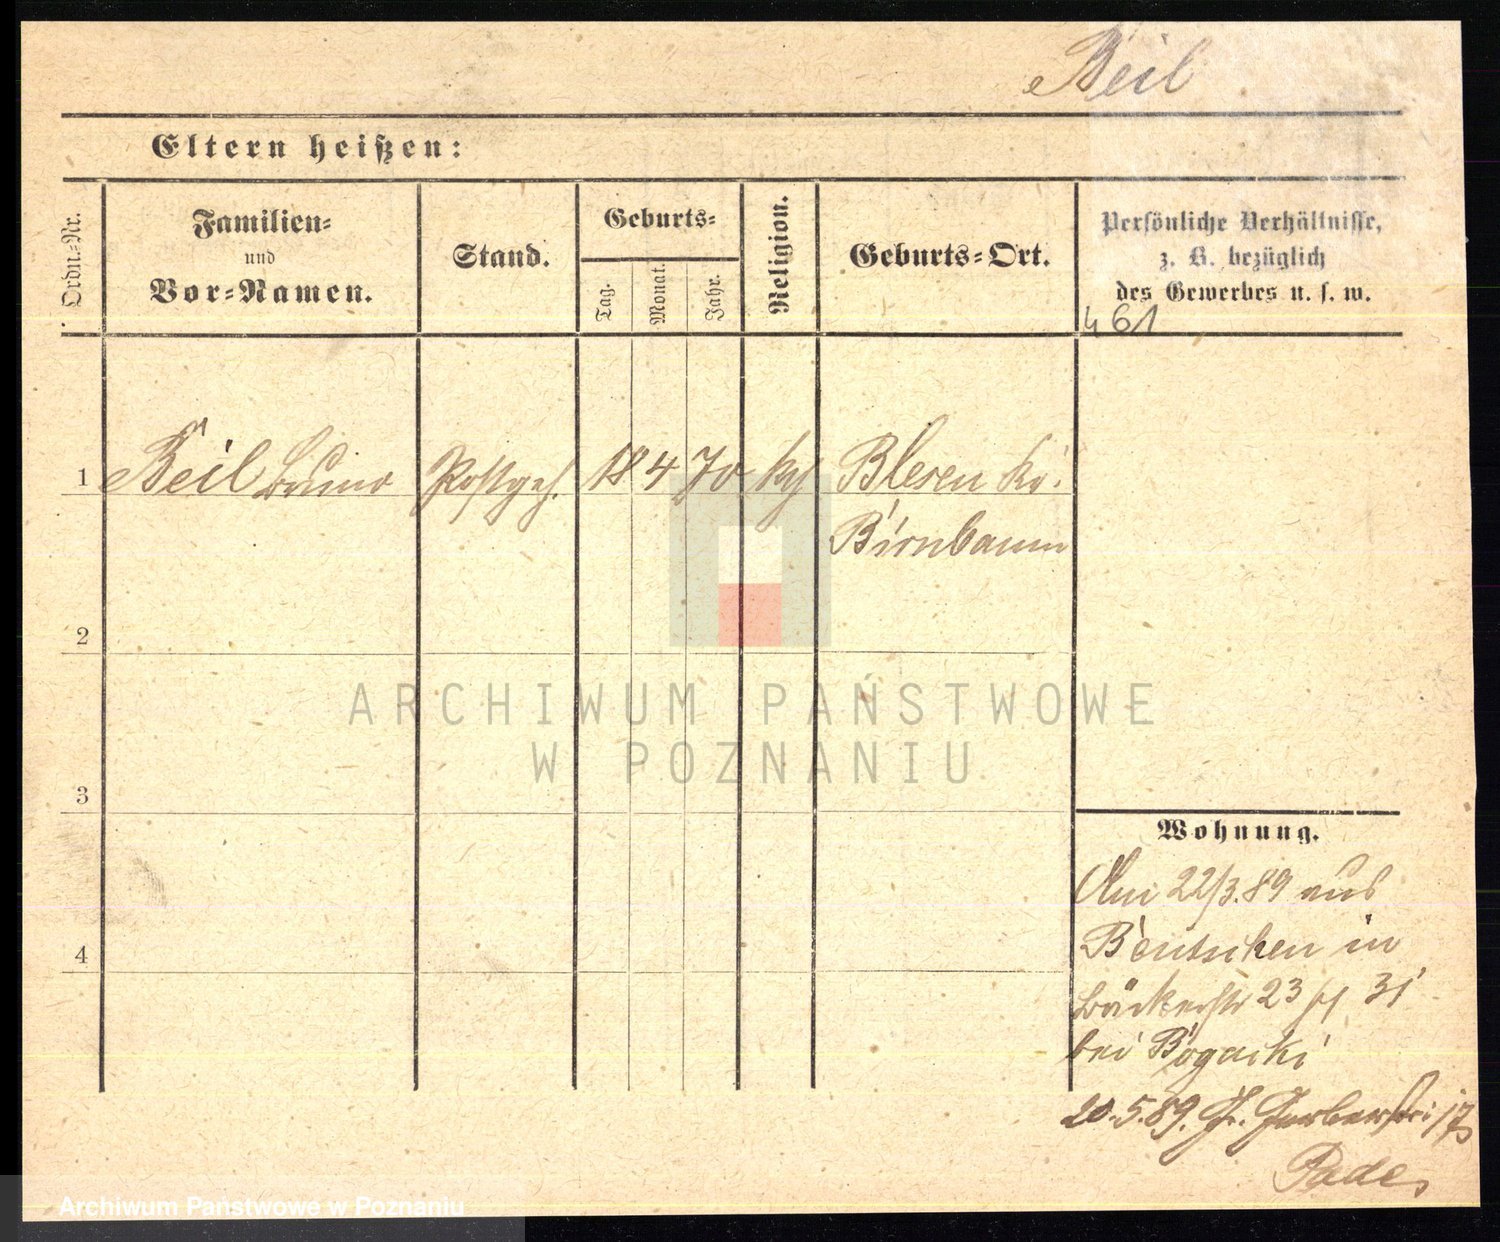 Beil
Eltern heißen:
Ordn.-Nr.
Familien-
und
Vor-Namen.
Stand.
Geburts-
Tag.
Monat.
Jahr.
Religion.
Geburts-Ort.
Persönliche Verhältnisse,
z. B. bezüglich
des Gewerbes u. s. w.
461
1 Beil Bruno Postgeh. 18 4 70 Blesen Kr.
Birnbaum
2
3
4
ARCHIWUM PAŃSTWOWE
W POZNANIU
Wohnung.
Am 22/3.89 aus
Bentschen in
Bäckerstr 23 31
bei Bogacki
20.5.89. Gr. Gerberstr 17
Pade
Archiwum Państwowe w Poznaniu